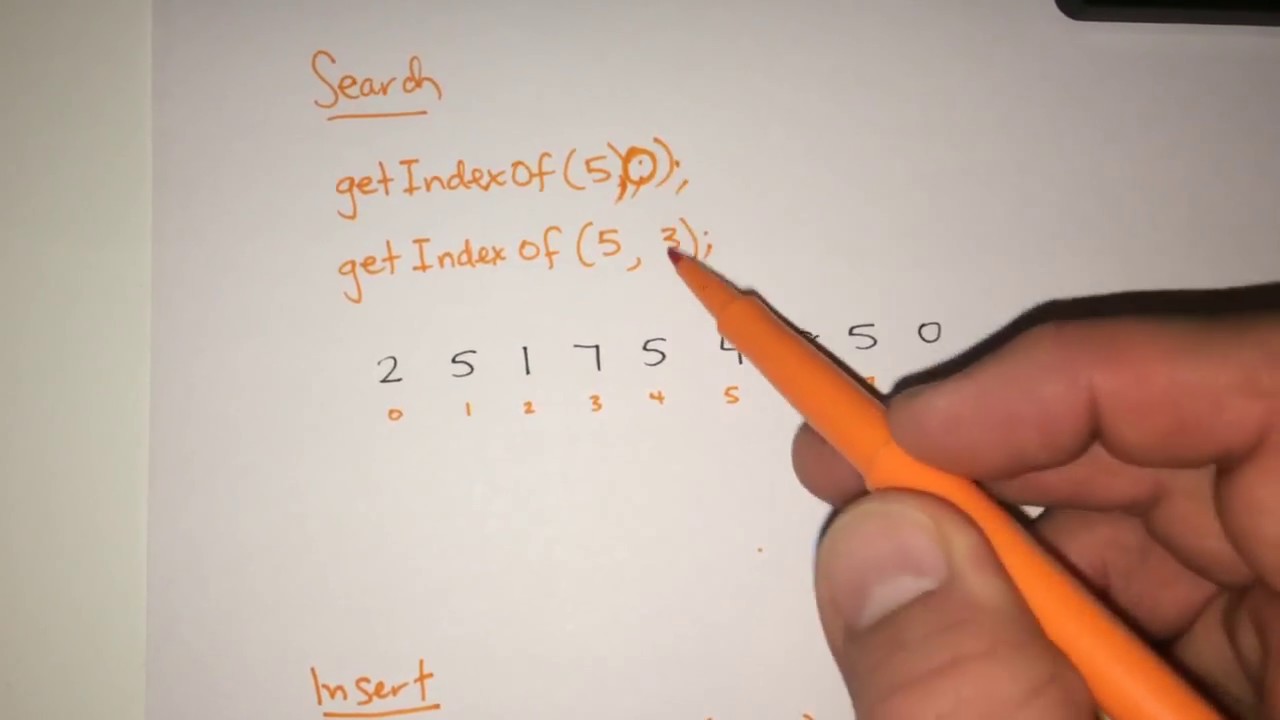 Search
getIndexOf(5,0);
getIndexOf(5, 3);
2 5 1 7 5 4 5 0
0 1 2 3 4 5
Insert